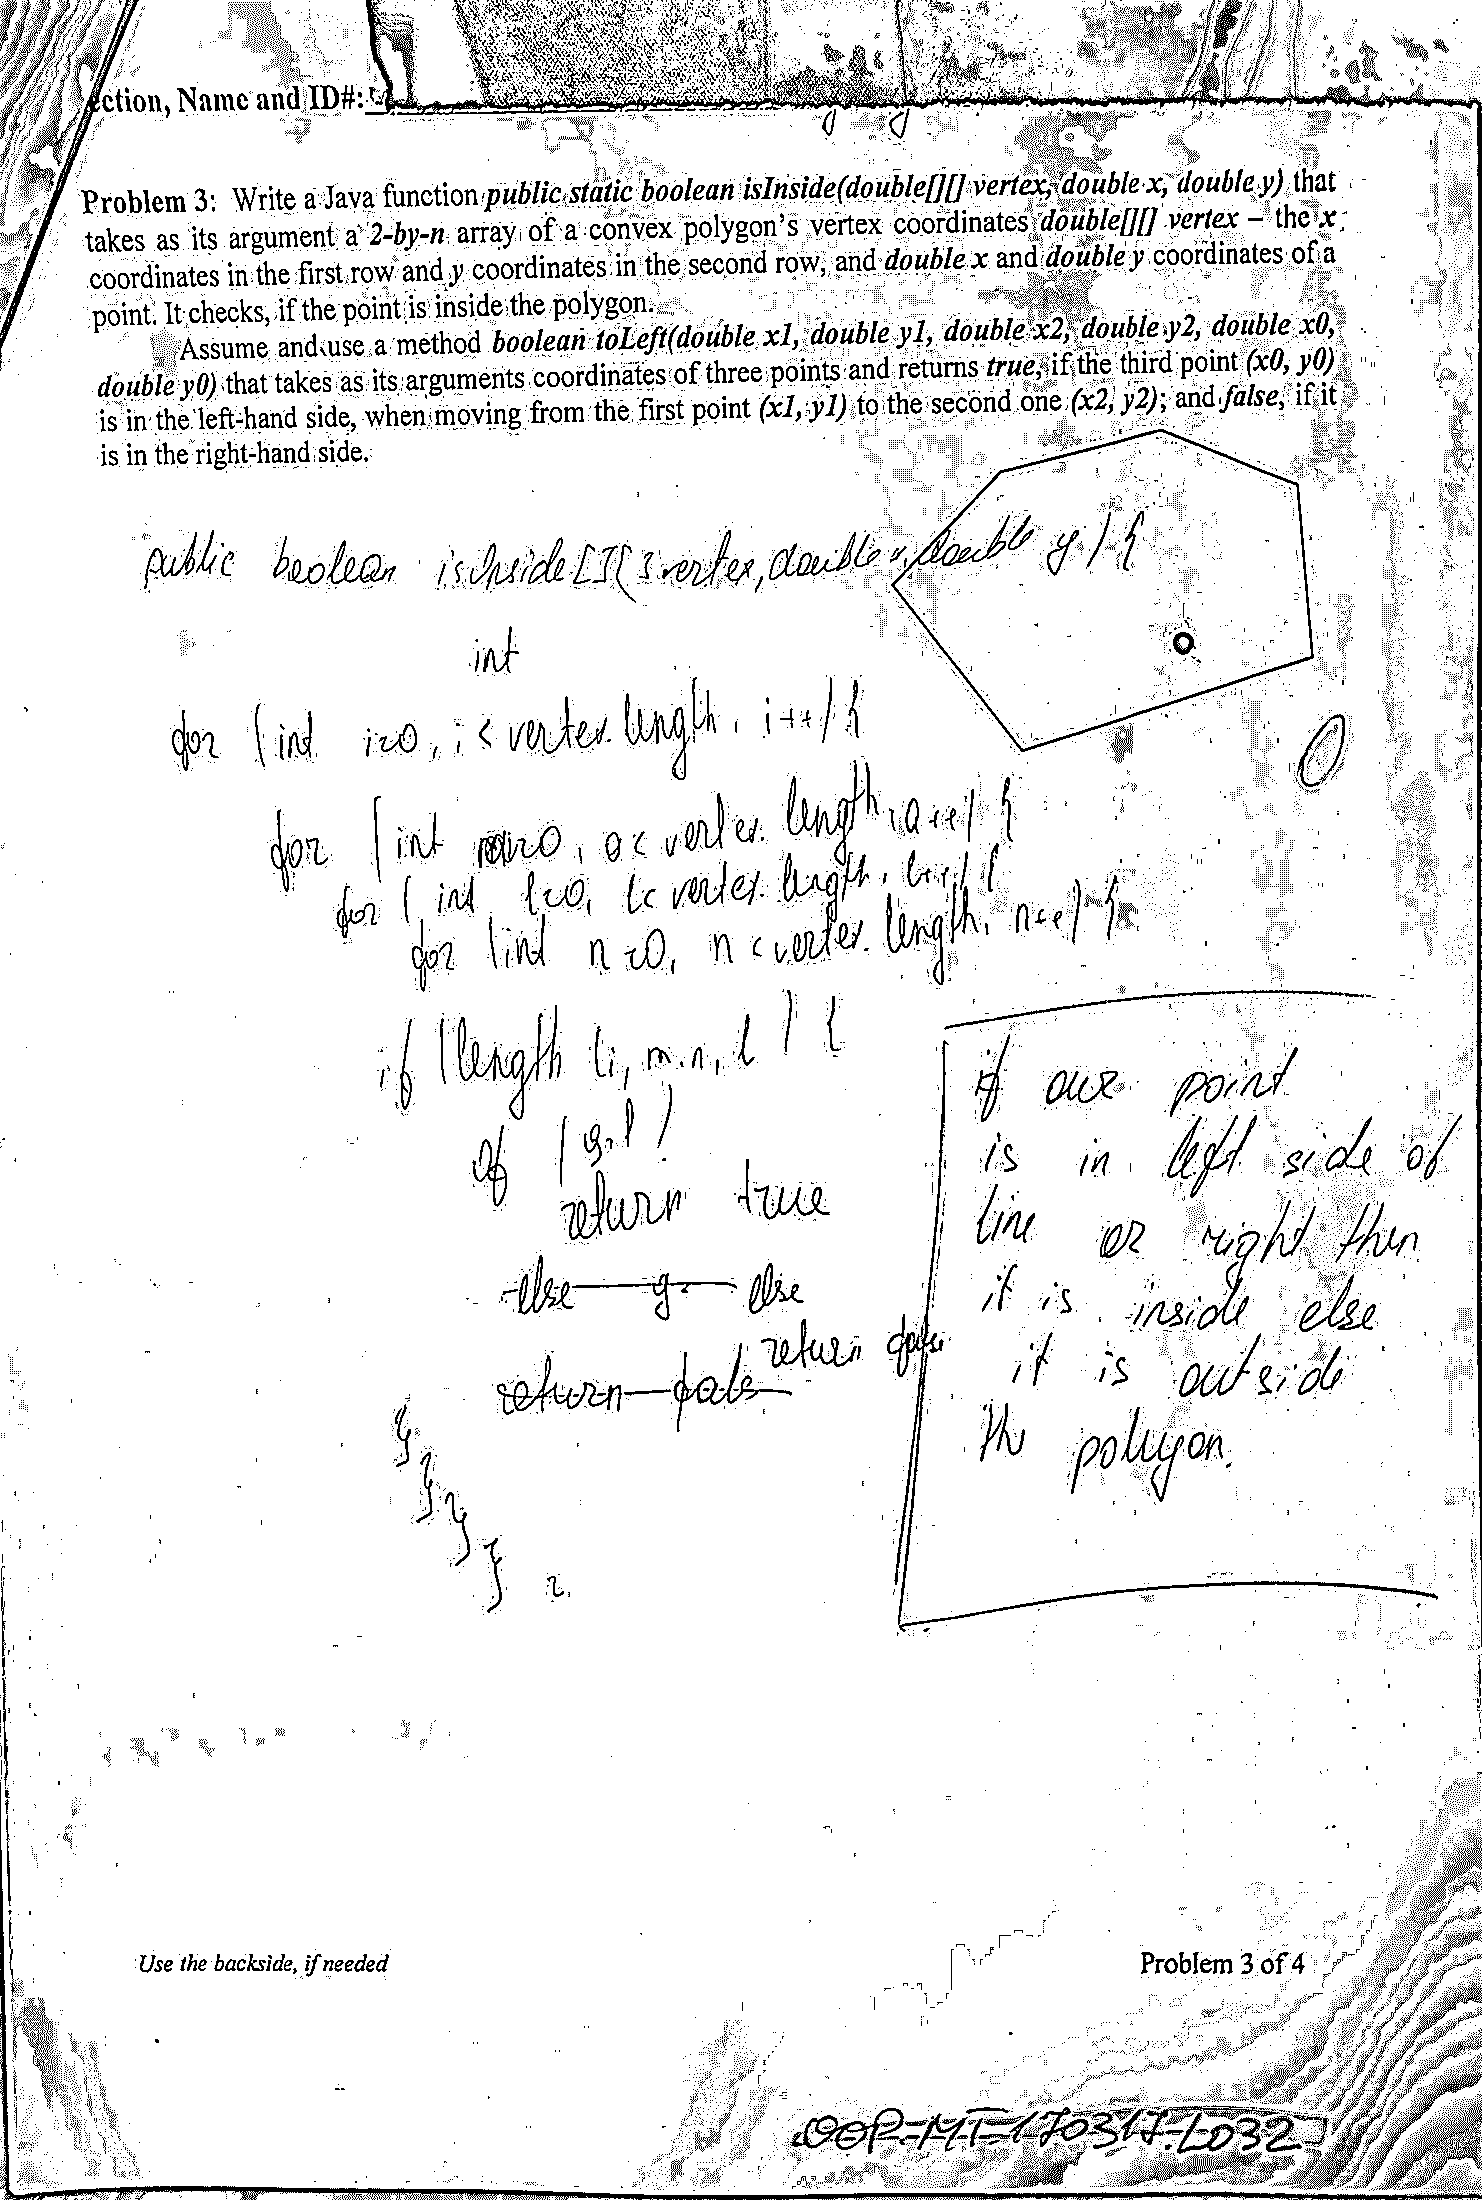 ction, Name and ID#:
Problem 3: Write a Java function public static boolean isInside(double[][] vertex, double x, double y) that
takes as its argument a 2-by-n array of a convex polygon's vertex coordinates double[][] vertex – the x
coordinates in the first row and y coordinates in the second row, and double x and double y coordinates of a
point. It checks, if the point is inside the polygon.
Assume and use a method boolean toLeft(double x1, double y1, double x2, double y2, double x0,
double y0) that takes as its arguments coordinates of three points and returns true, if the third point (x0, y0)
is in the left-hand side, when moving from the first point (x1, y1) to the second one (x2, y2); and false, if it
is in the right-hand side.
public boolean isInside [][] vertex, double x, double y) {
int
for (int i=0, i < vertex.length, i++) {
for (int =0, a< vertex.length, a++) {
for (int l=0, l< vertex.length, l++) {
for (int n=0, n < vertex.length, n++) {
if (length (i, m.n, l ) {
if ( )
return true
else g. else
return false
return fals
}
}
}
}
if our point
is in left side of
line or right then
it is inside else
it is outside
the polygon.
Use the backside, if needed
Problem 3 of 4
OOP-MT-170317-L032